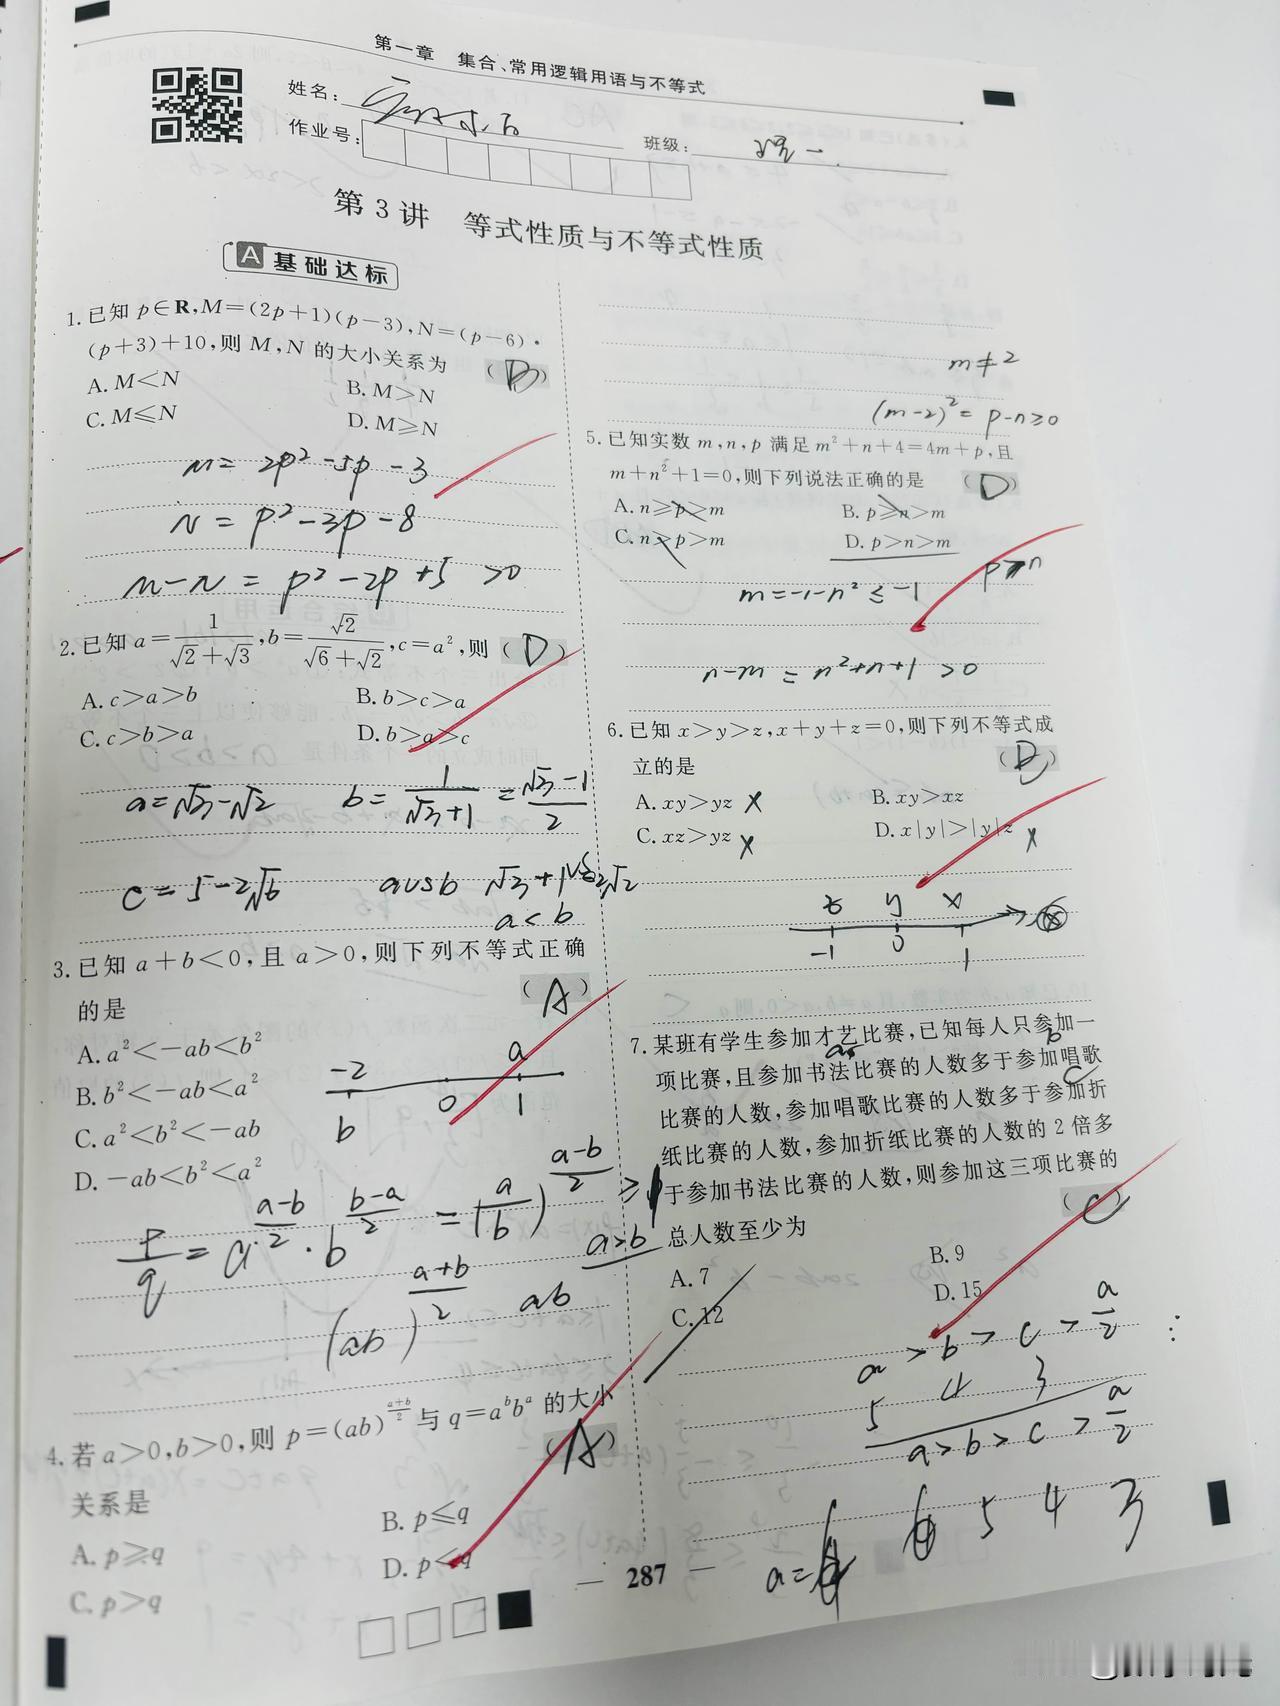 第一章 集合、常用逻辑用语与不等式
姓名:
作业号:
班级:
第3讲 等式性质与不等式性质
A 基础达标
1.已知p∈R,M=(2p+1)(p-3),N=(p-6)·
(p+3)+10,则M,N的大小关系为 (B)
A.M<N B.M>N
C.M≤N D.M≥N
M=2p²-5p-3
N=p²-3p-8
M-N=p²-2p+5>0
2.已知a=1/(√2+√3),b=√2/(√6+√2),c=a²,则(D)
A.c>a>b B.b>c>a
C.c>b>a D.b>a>c
a=√3-√2 b=1/(√3+1)=(√3-1)/2
c=5-2√6 a vs b √3+1 vs 2√2
a<b
3.已知a+b<0,且a>0,则下列不等式正确
的是 (A)
A.a²<-ab<b²
B.b²<-ab<a²
C.a²<b²<-ab
D.-ab<b²<a²
-2 a
b 0 1
p/q=a^((a-b)/2)·b^((b-a)/2)=(a/b)^((a-b)/2)≥1
a>b
(ab)^((a+b)/2) ab
4.若a>0,b>0,则p=(ab)^((a+b)/2)与q=a^b b^a的大小
关系是 (A)
A.p≥q B.p≤q
C.p>q D.p<q
m≠2
(m-2)²=p-n≥0
5.已知实数m,n,p满足m²+n+4=4m+p,且
m+n²+1=0,则下列说法正确的是 (D)
A.n≥p>m B.p≥n>m
C.n>p>m D.p>n>m
p>n
m=-1-n²≤-1
n-m=n²+n+1>0
6.已知x>y>z,x+y+z=0,则下列不等式成
立的是 (B)
A.xy>yz × B.xy>xz
C.xz>yz × D.x|y|>|y|z ×
z y x
-1 0 1
7.某班有学生参加才艺比赛,已知每人只参加一
项比赛,且参加书法比赛的人数多于参加唱歌
比赛的人数,参加唱歌比赛的人数多于参加折
纸比赛的人数,参加折纸比赛的人数的2倍多
于参加书法比赛的人数,则参加这三项比赛的
总人数至少为 (C)
A.7 B.9
C.12 D.15
a>b>c>a/2
5 4 3
a>b>c>a/2
a= 5 4 3
— 287 —